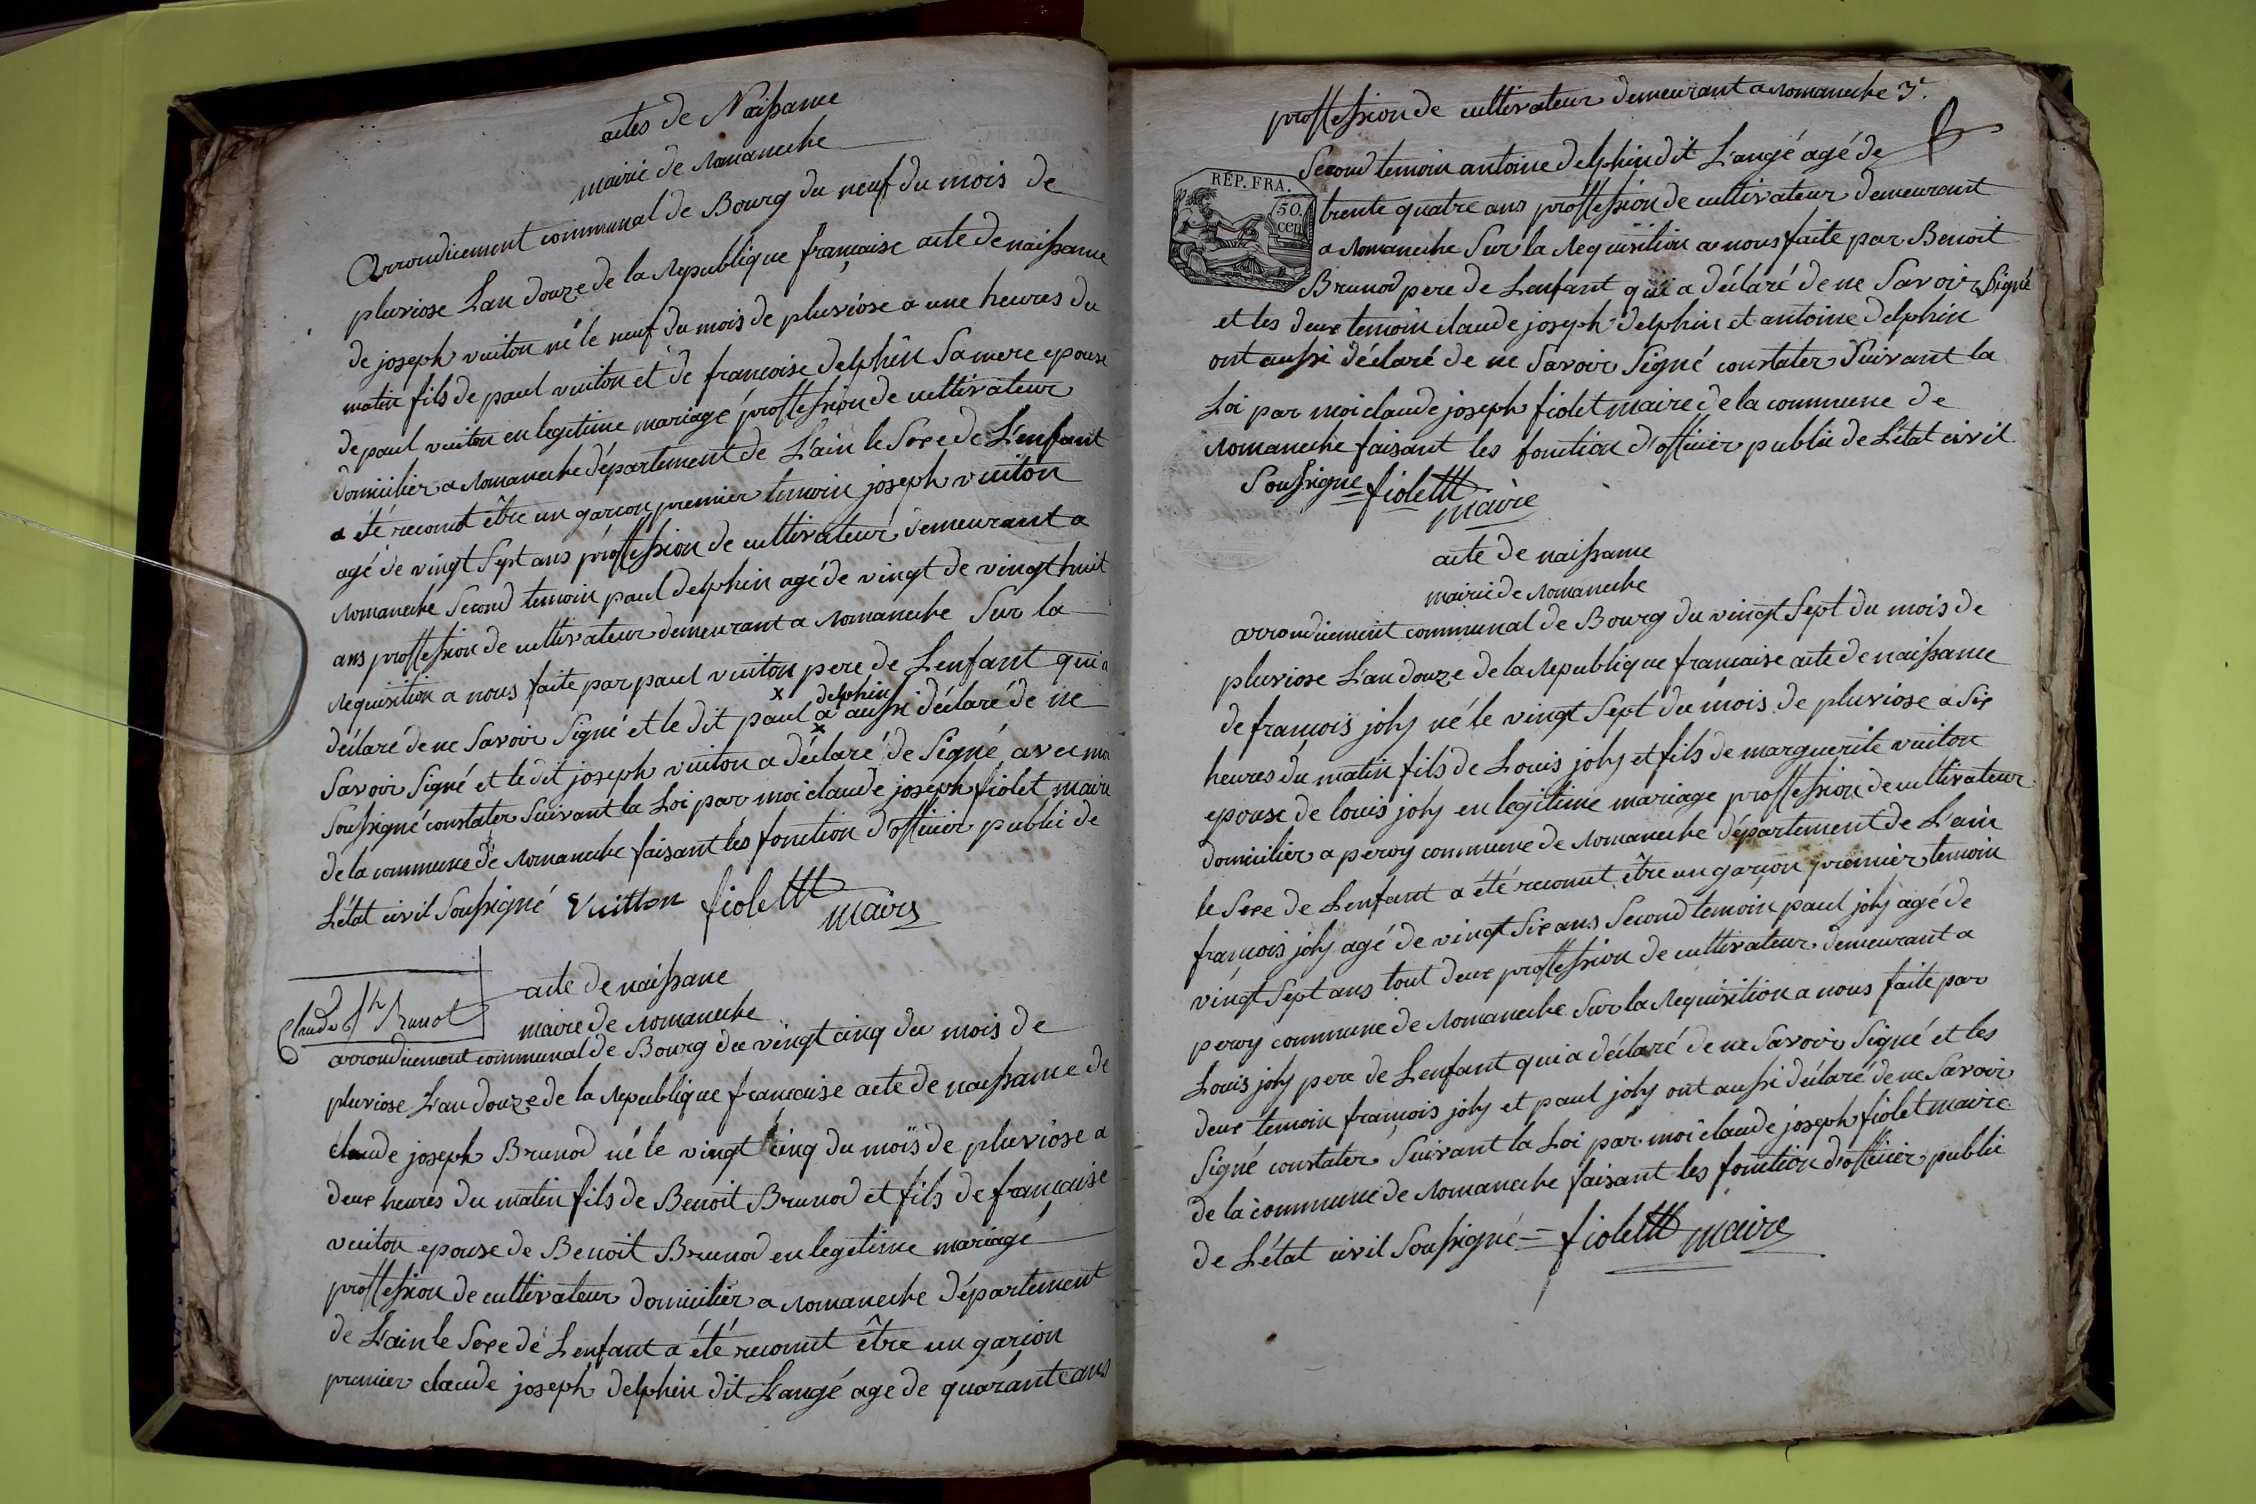 actes de Naissance
mairie de Romaneche
Arrondicement communal de Bourg du neuf du mois de
pluviose L'an douze de la Republique française acte de naissance
de joseph vuiton né le neuf du mois de pluviose a une heures du
matin fils de paul vuiton et de francoise delphin Sa mere epouse
de paul vuiton en legitime mariage proffession de cultivateur
domicilier a Romaneche département de L'ain le Sexe de L'enfant
a été reconut être un garcon premier temoin joseph vuiton
agé de vingt Sept ans proffession de cultivateur demeurant a
Romaneche Second temoin paul delphin agé de vingt de vingt huit
ans proffession de cultivateur demeurant a Romaneche Sur la
Requisition a nous faite par paul vuiton pere de L'enfant qui a
x delphin
déclaré de ne Savoir Signé et le dit paul a aussi déclaré de ne
x
Savoir Signé et le dit joseph vuiton a déclaré de Signé avec moi
Soussigné constater Suivant la Loi par moi claude joseph fiolet maire
de la commune de Romaneche faisant les fonction d'officier public de
L'état civil Soussigné Vuitton fiolettt
maire
acte de naissance
Claude Jh Brunot
maire de Romaneche
arrondicement communal de Bourg du vingt cinq du mois de
pluviose L'an douze de la Republique francaise acte de naissance de
claude joseph Brunod né le vingt cinq du mois de pluviose a
deux heures du matin fils de Benoit Brunod et fils de françoise
vuiton epouse de Benoit Brunod en legetime mariagé
proffession de cultivateur domicilier a Romaneche département
de L'ain le Sexe de L'enfant a été reconut être un garçon
premier claude joseph delphin dit L'angé age de quarante ans
proffession de cultivateur demeurant a Romaneche 3e.
Second temoin antoine delphin dit L'angé agé de
REP. FRA.
50.
cen
trente quatre ans proffession de cultivateur demeurant
a Romaneche Sur la Requisition a nous faite par Benoit
Brunod pere de L'enfant qui a déclaré de ne Savoir Signé
et les deux temoin claude joseph delphin et antoine delphin
ont aussi déclaré de ne Savoir Signé constater Suivant la
Loi par moi claude joseph fiolet maire de la commune de
Romaneche faisant les fonction d'officier public de L'état civil
Soussigne = fiolettt
maire
acte de naissance
mairie de Romaneche
arrondicement communal de Bourg du vingt Sept du mois de
pluviose L'an douze de la Republique francaise acte de naissance
de françois joly né le vingt Sept du mois de pluviose a Six
heures du matin fils de Louis joly et fils de marguerite vuiton
epouse de louis joly en legitime mariage proffession de cultivateur
domicilier a peroy commune de Romaneche département de L'ain
le Sexe de L'enfant a été reconut être un garçon premier temoin
françois joly agé de vingt Six ans Second temoin paul joly agé de
vingt Sept ans tout deux proffession de cultivateur demeurant a
peroy commune de Romaneche Sur la Requisition a nous faite par
Louis joly pere de L'enfant qui a déclaré de ne Savoir Signé et les
deux temoin francois joly et paul joly ont aussi déclaré de ne Savoir
Signé constater Suivant la Loi par moi claude joseph fiolet maire
de la commune de Romaneche faisant les fonction d'officier public
de L'état civil Soussigné = fiolettt maire